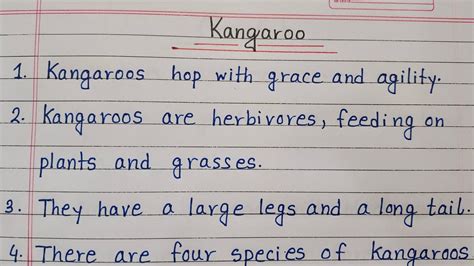 Kangaroo
1. Kangaroos hop with grace and agility.
2. Kangaroos are herbivores, feeding on
plants and grasses.
3. They have a large legs and a long tail.
4. There are four species of kangaroos